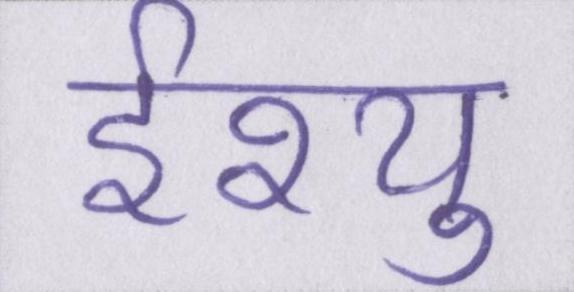 ईश्यु